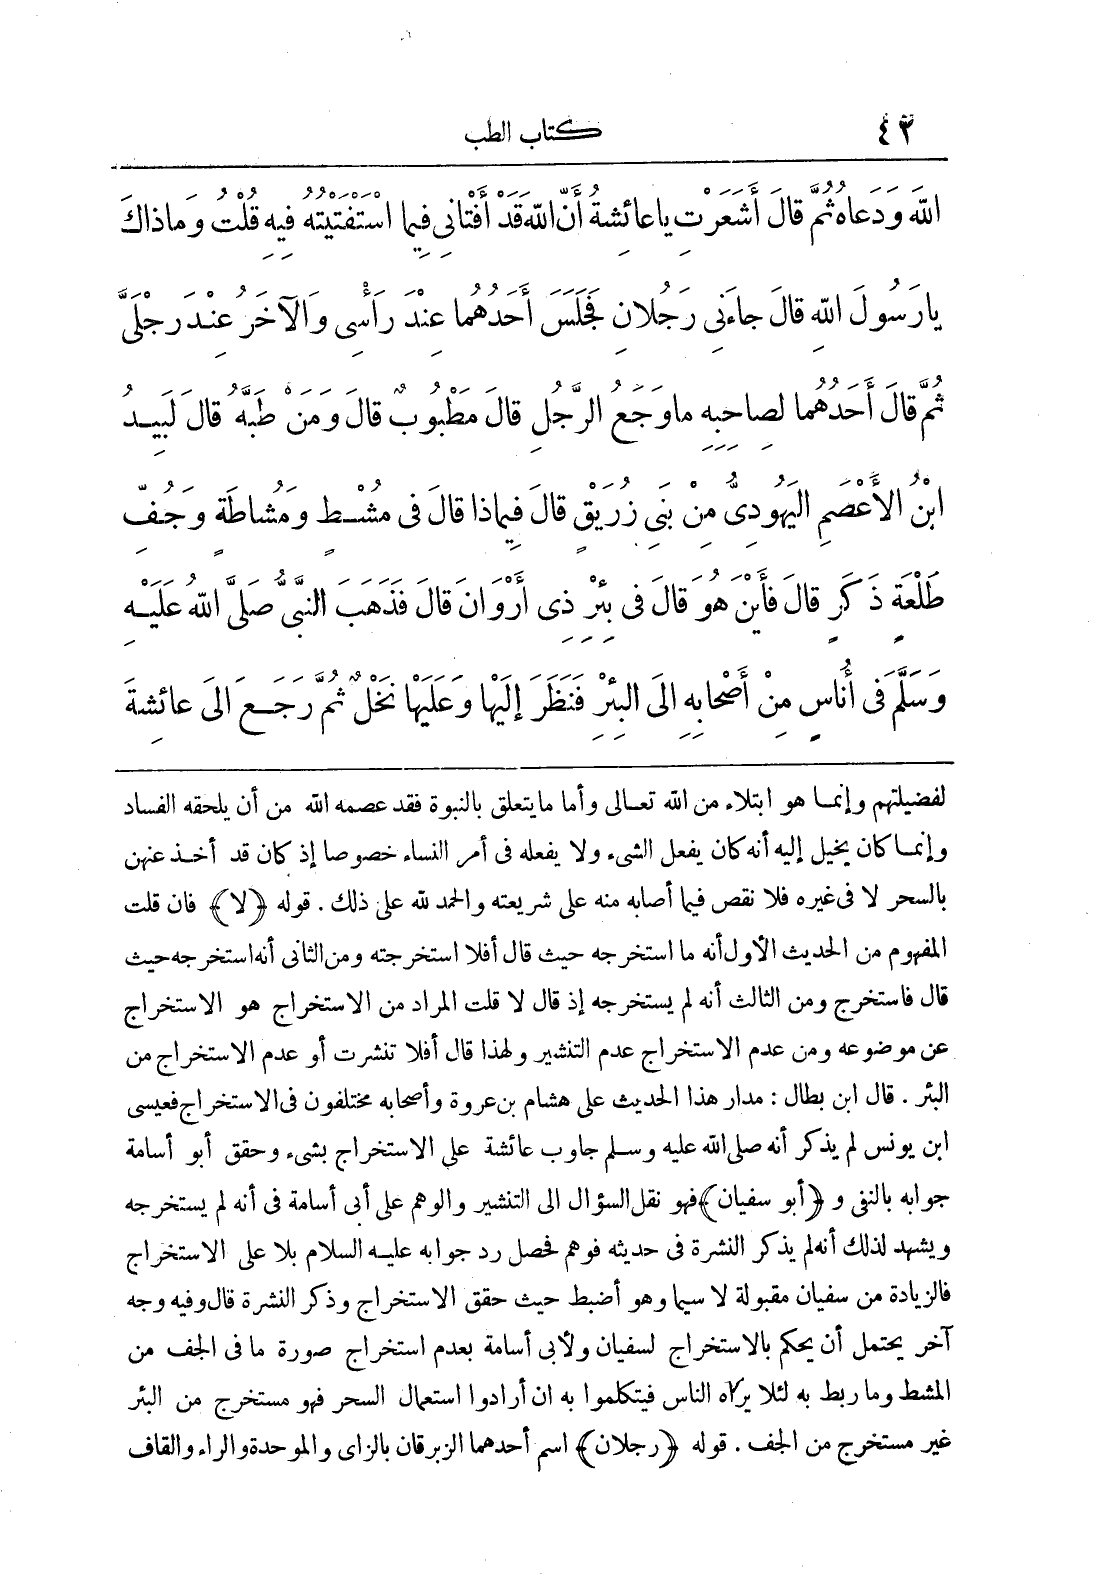 ٤٣ كتاب الطب
اللّهَ وَدَعَاهُ ثُمَّ قَالَ أَشَعَرْتِ يَا عَائِشَةُ أَنَّ اللّهَ قَدْ أَفْتَانِي فِيمَا اسْتَفْتَيْتُهُ فِيهِ قُلْتُ وَمَا ذَاكَ
يَا رَسُولَ اللّهِ قَالَ جَاءَنِي رَجُلَانِ فَجَلَسَ أَحَدُهُمَا عِنْدَ رَأْسِي وَالآخَرُ عِنْدَ رِجْلَيَّ
ثُمَّ قَالَ أَحَدُهُمَا لِصَاحِبِهِ مَا وَجَعُ الرَّجُلِ قَالَ مَطْبُوبٌ قَالَ وَمَنْ طَبَّهُ قَالَ لَبِيدُ
ابْنُ الأَعْصَمِ الْيَهُودِيُّ مِنْ بَنِي زُرَيْقٍ قَالَ فِيمَاذَا قَالَ فِي مُشْطٍ وَمُشَاطَةٍ وَجُفِّ
طَلْعَةٍ ذَكَرٍ قَالَ فَأَيْنَ هُوَ قَالَ فِي بِئْرِ ذِي أَرْوَانَ قَالَ فَذَهَبَ النَّبِيُّ صَلَّى اللّهُ عَلَيْهِ
وَسَلَّمَ فِي أُنَاسٍ مِنْ أَصْحَابِهِ إِلَى الْبِئْرِ فَنَظَرَ إِلَيْهَا وَعَلَيْهَا نَخْلٌ ثُمَّ رَجَعَ الَى عَائِشَةَ
لفضيلتهم وإنما هو ابتلاء من الله تعالى وأما ما يتعلق بالنبوة فقد عصمه الله من أن يلحقه الفساد
وإنما كان يخيل إليه أنه كان يفعل الشيء ولا يفعله فى أمر النساء خصوصا إذ كان قد أخذ عنهن
بالسحر لا فى غيره فلا نقص فيما أصابه منه على شريعته والحمد لله على ذلك . قوله ﴿لا﴾ فان قلت
المفهوم من الحديث الأول أنه ما استخرجه حيث قال أفلا استخرجته ومن الثانى أنه استخرجه حيث
قال فاستخرج ومن الثالث أنه لم يستخرجه إذ قال لا قلت المراد من الاستخراج هو الاستخراج
عن موضوعه ومن عدم الاستخراج عدم التنشير ولهذا قال أفلا تنشرت أو عدم الاستخراج من
البئر . قال ابن بطال : مدار هذا الحديث على هشام بن عروة وأصحابه مختلفون فى الاستخراج فعيسى
ابن يونس لم يذكر أنه صلى الله عليه وسلم جاوب عائشة على الاستخراج بشىء وحقق أبو أسامة
جوابه بالنفى و ﴿أبو سفيان﴾ فهو نقل السؤال الى التنشير والوهم على أبى أسامة فى أنه لم يستخرجه
ويشهد لذلك أنه لم يذكر النشرة فى حديثه فوهم فحصل رد جوابه عليه السلام بلا على الاستخراج
فالزيادة من سفيان مقبولة لا سيما وهو أضبط حيث حقق الاستخراج وذكر النشرة قال وفيه وجه
آخر يحتمل أن يحكم بالاستخراج لسفيان ولأبى أسامة بعدم استخراج صورة ما فى الجف من
المشط وما ربط به لئلا يراه الناس فيتكلموا به ان أرادوا استعمال السحر فهو مستخرج من البئر
غير مستخرج من الجف . قوله ﴿رجلان﴾ اسم أحدهما الزبرقان بالزاى والموحدة والراء والقاف